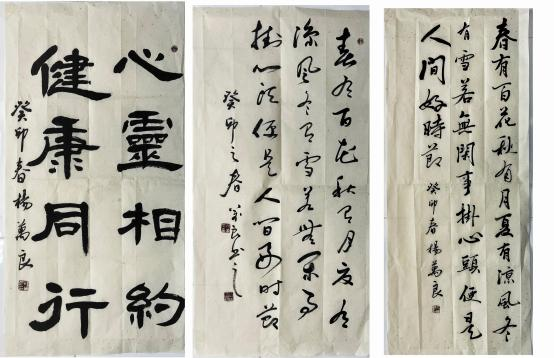 心靈相約
健康同行
癸卯春楊萬良
春有百花秋有月夏有
涼風冬有雪若無閑事
掛心頭便是人間好時節
癸卯之春萬良书之
春有百花秋有月夏有涼風冬
有雪若無閑事掛心頭便是
人間好時節 癸卯春楊萬良